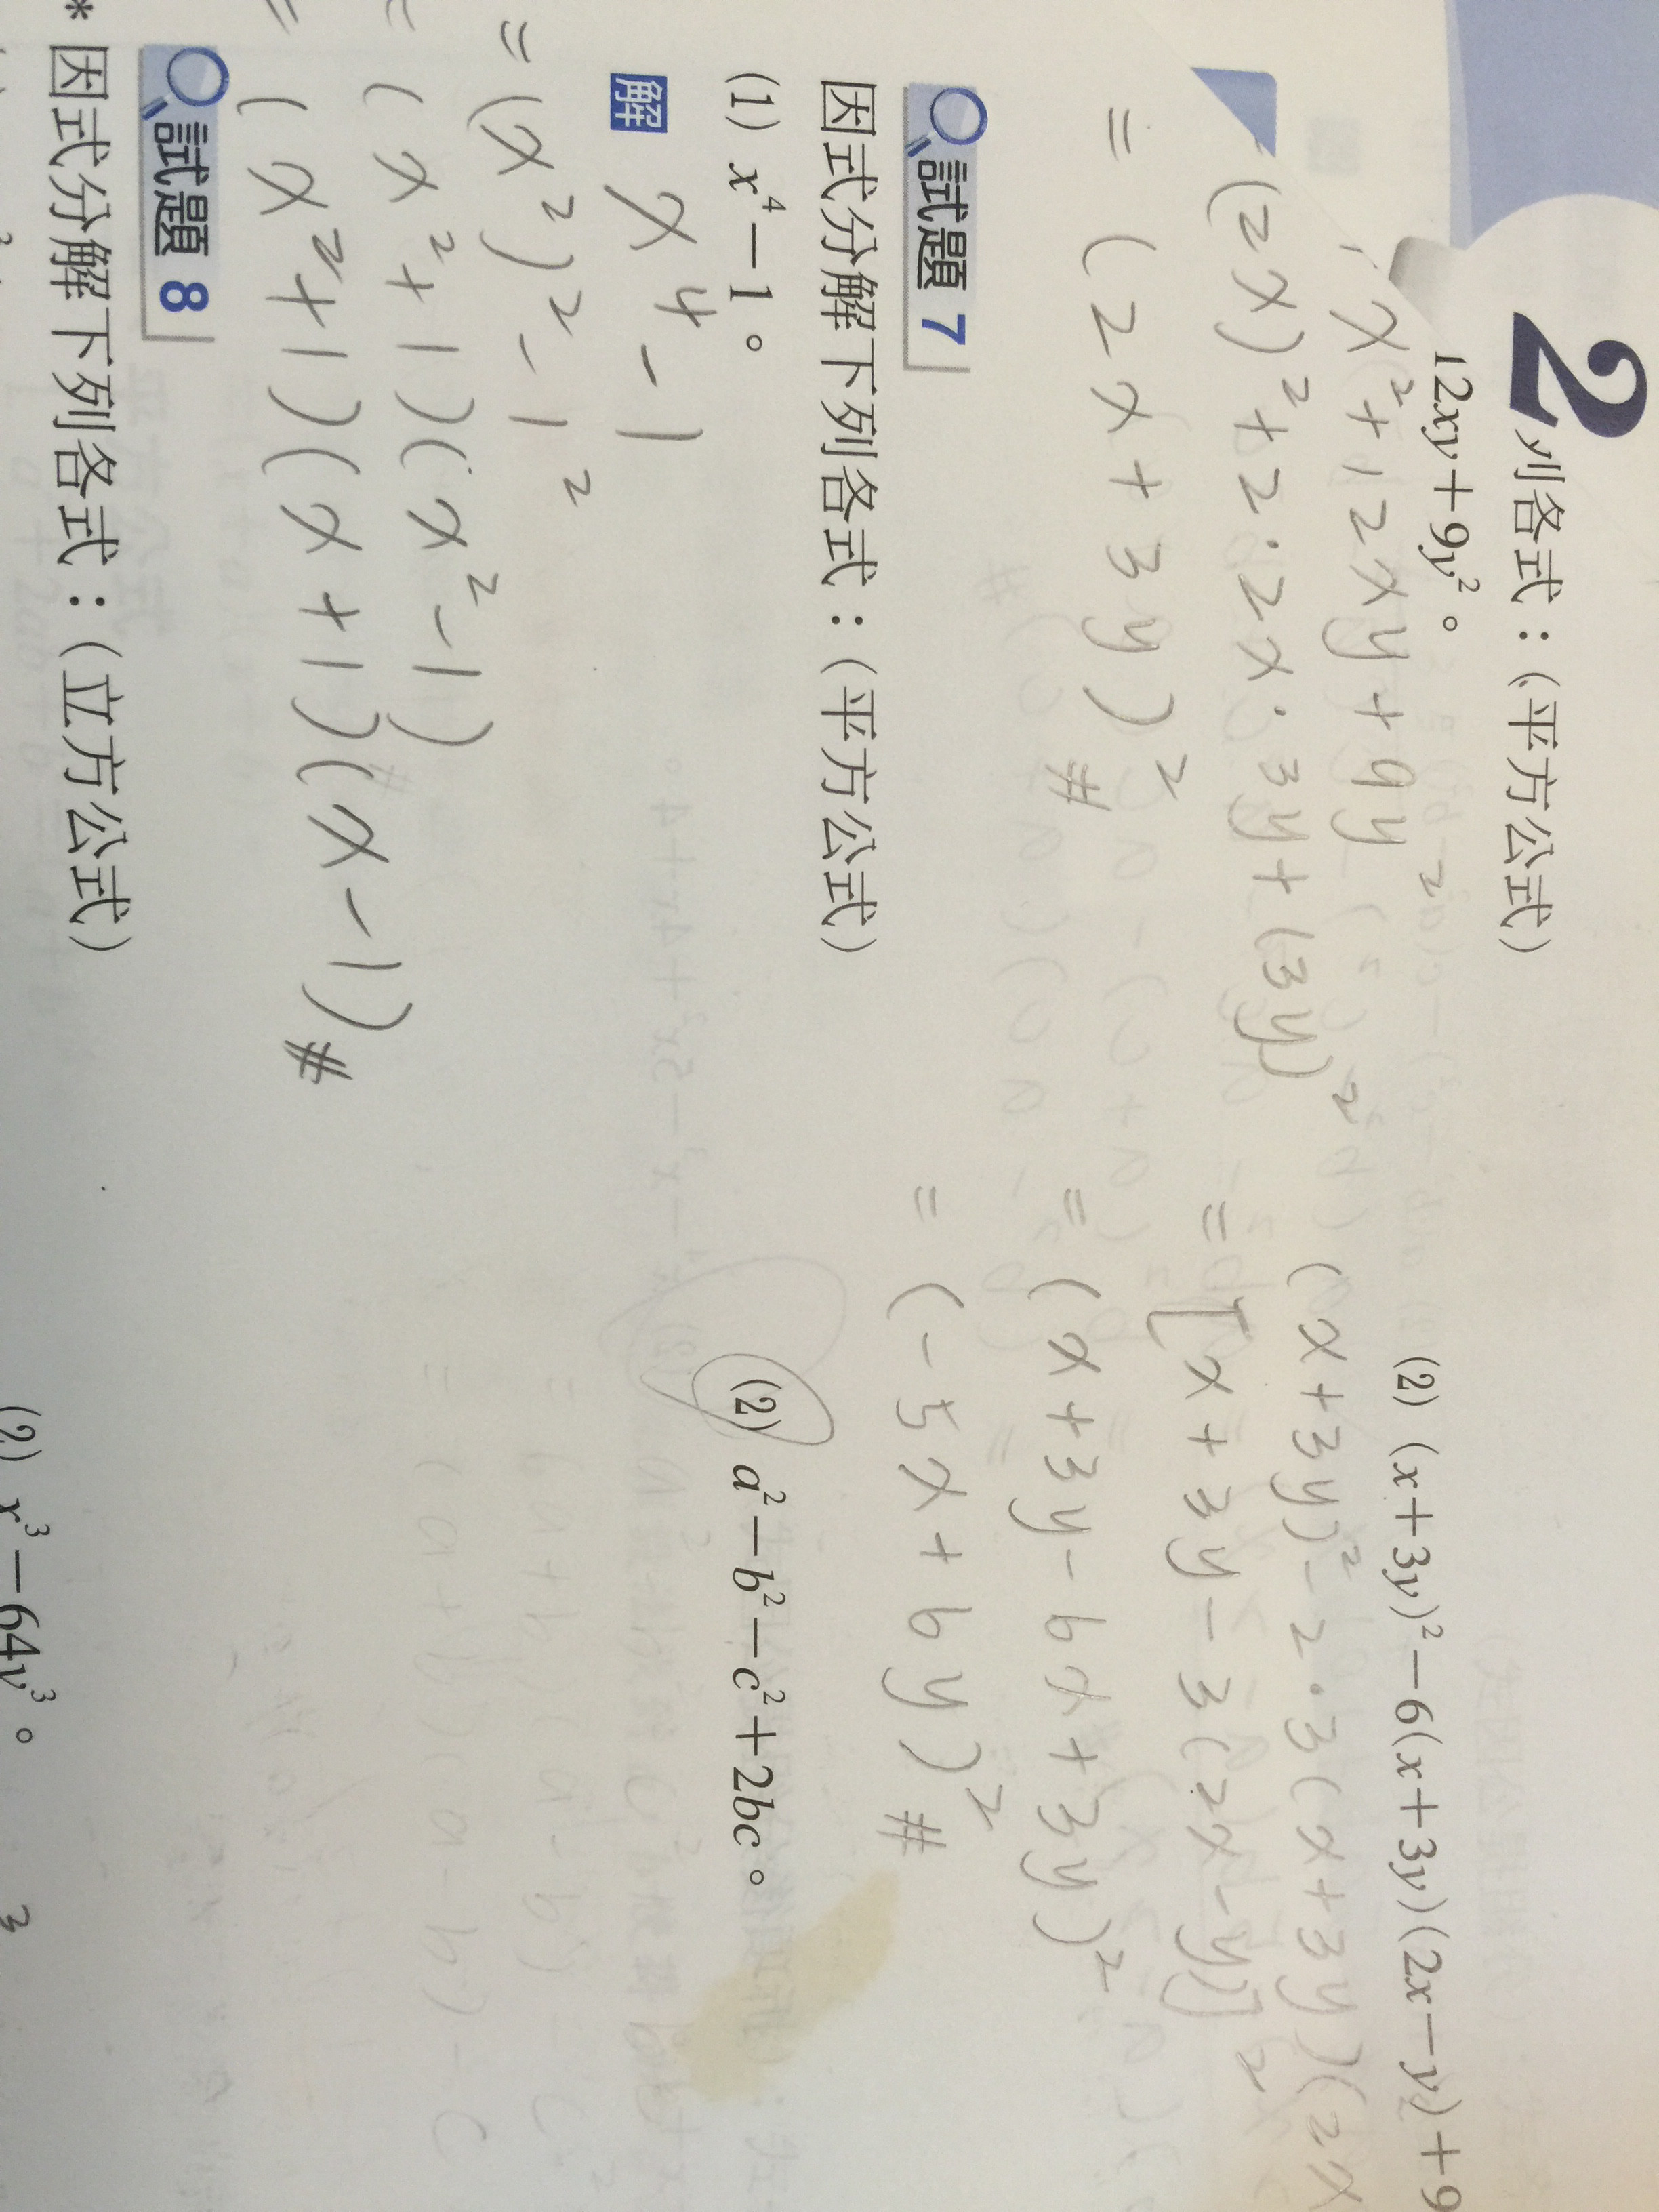 2
列各式：（平方公式）
12xy＋9y²。
x²+12xy+9y²
(2x)²+2·2x·3y+(3y)²
=(2x+3y)²#
(2) (x＋3y)²－6(x＋3y)(2x－y)＋9
(x+3y)²-2·3(x+3y)(2x
=[x+3y-3(2x-y)]²
=(x+3y-6x+3y)²
=(-5x+6y)²#
試題 7
因式分解下列各式：（平方公式）
(1) x⁴－1。
(2) a²－b²－c²＋2bc。
解
x⁴-1
=(x²)²-1²
=(x²+1)(x²-1)
=(x²+1)(x+1)(x-1)#
試題 8
* 因式分解下列各式：（立方公式）
(2) x³－64y³。
3